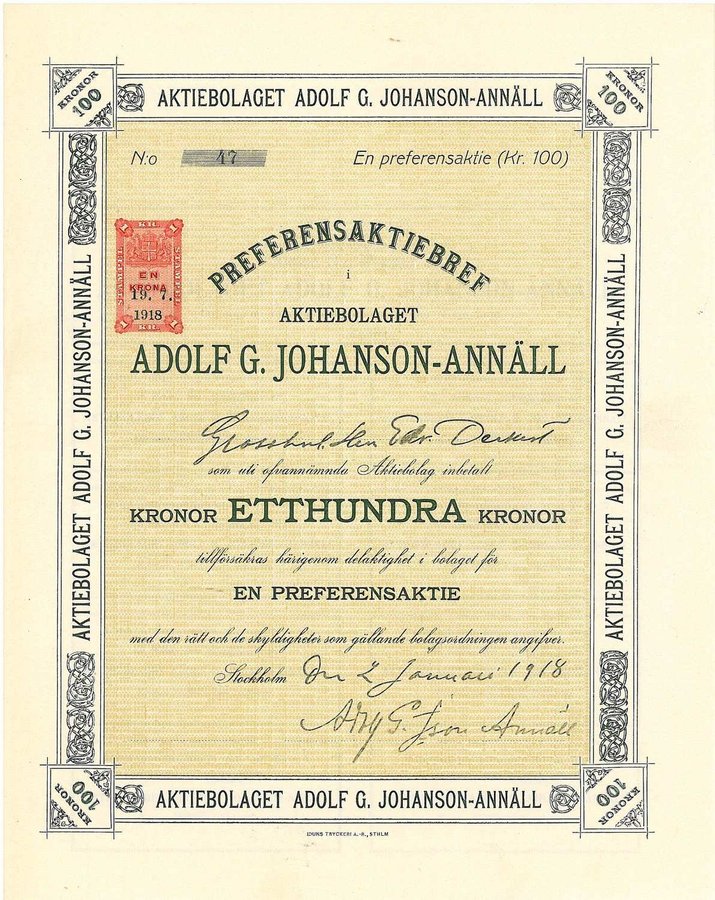 KRONOR 100
AKTIEBOLAGET ADOLF G. JOHANSON-ANNÄLL
KRONOR 100
N:o 47
En preferensaktie (Kr. 100)
1 KR. 1
STÄMPEL
EN
KRONA
19. 7.
1918
1 KR. 1
PREFERENSAKTIEBREF
i
AKTIEBOLAGET
ADOLF G. JOHANSON-ANNÄLL
Herr Edv.
som uti ofvannämnda Aktiebolag inbetalt
KRONOR ETTHUNDRA KRONOR
tillförsäkras härigenom delaktighet i bolaget för
EN PREFERENSAKTIE
med den rätt och de skyldigheter som gällande bolagsordningen angifver.
Stockholm den 2 Januari 1918
Adolf G. Json Annäll
AKTIEBOLAGET ADOLF G. JOHANSON-ANNÄLL
AKTIEBOLAGET ADOLF G. JOHANSON-ANNÄLL
KRONOR 100
AKTIEBOLAGET ADOLF G. JOHANSON-ANNÄLL
KRONOR 100
IDUNS TRYCKERI A.-B., STHLM